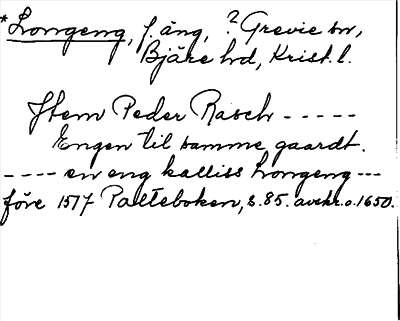 *Longeng, f. äng, ? Grevie sn,
Bjäre hd, Krist. l.
Jtem Peder Rasch -----
Engen til samme gaardt.
---- en eng kalliss Longeng ---
före 1517 Palteboken, s. 85. avskr. o. 1650.